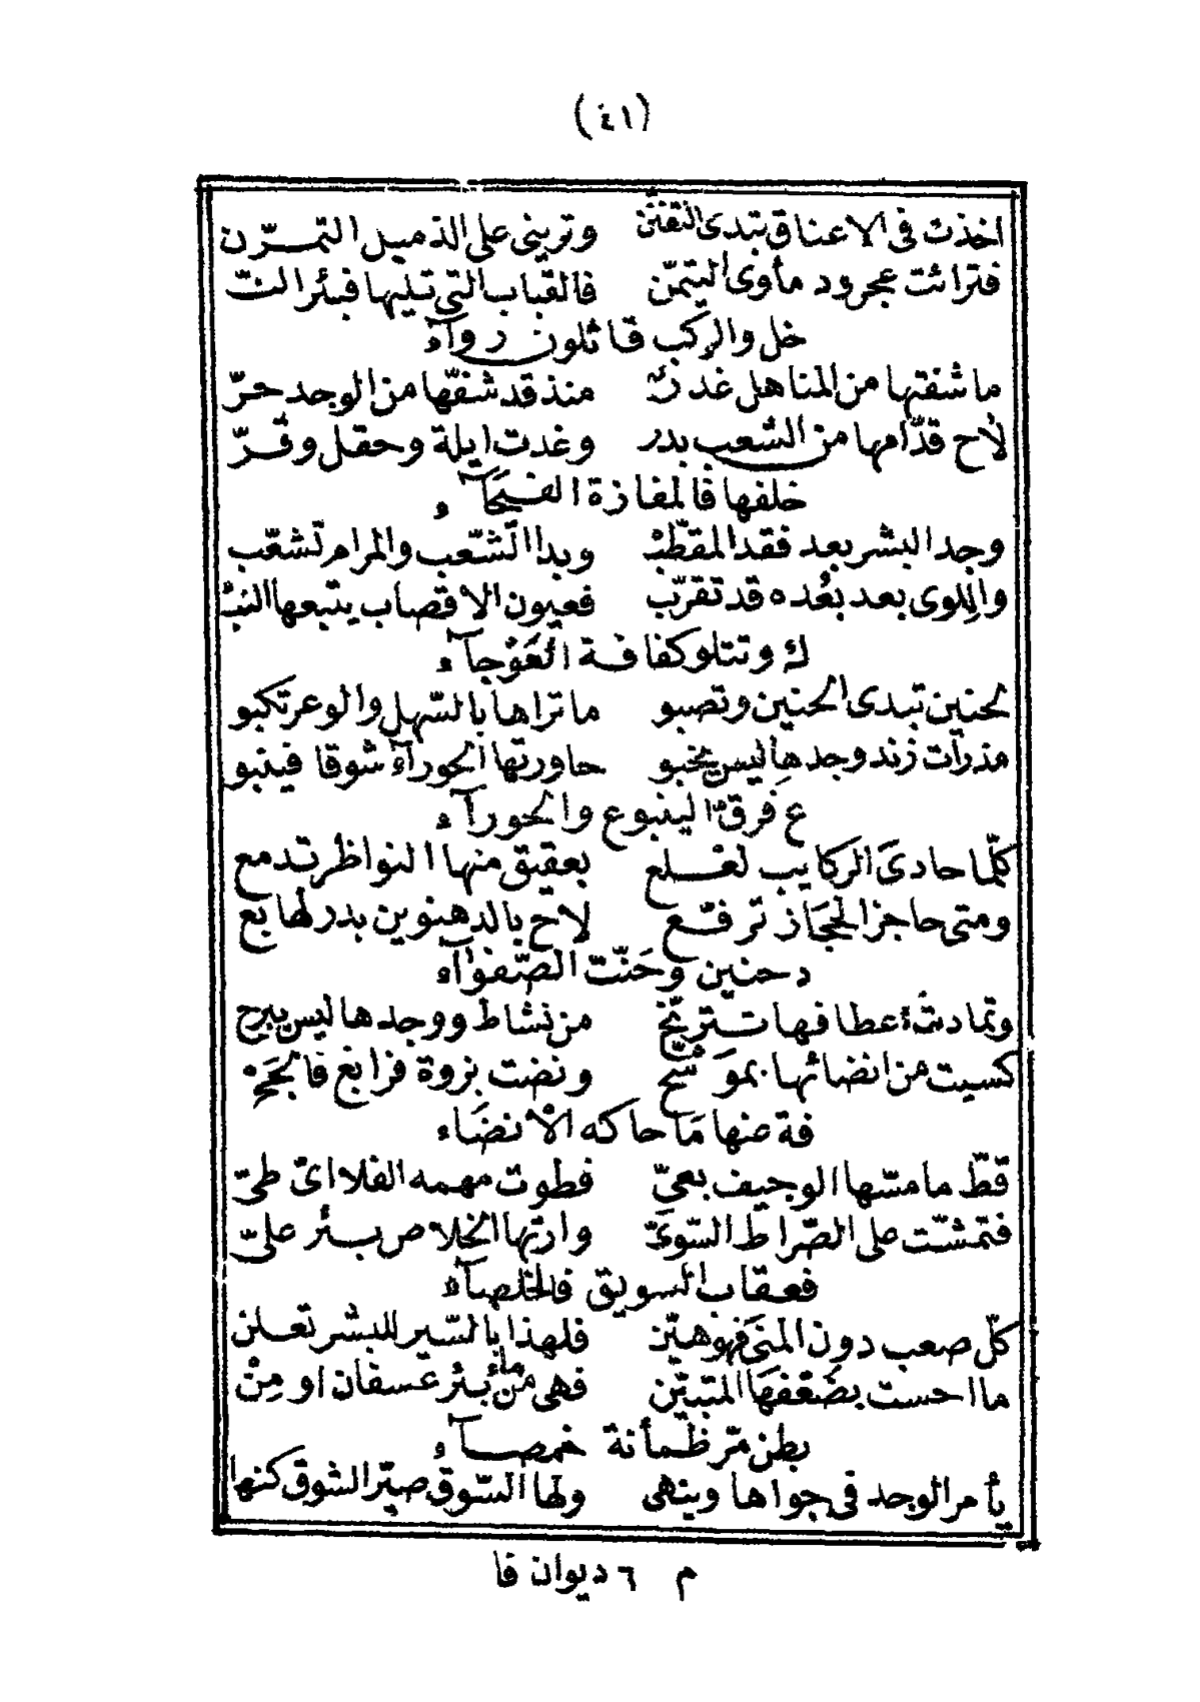 (٤١)
اخذت فى الاعناق تبدى التفنّن وترينى على الذميل التمرّن
فتراءت عجرود مأوى التيمّن فالقباب التى تليها فبئر النّـ
خل والركب قائلون روآء
ما شفتها من المناهل غدر منذ قد شفّها من الوجد حرّ
لاح قدّامها من الشعب بدر وغدت ايلة وحقل وقرّ
خلفها فالمفازة الفيحآء
وجد البشر بعد فقد المقطّب وبدا التّشعّب والمرام تشعّب
واللوى بعد بُعده قد تقرّب فعيون الاقصاب يتبعها النبـ
ك وتتلو كفافة العَوْجآء
لحنين تبدى الحنين وتصبو ما تراها بالسّهل والوعر تكبو
مذ رأت زند وجدها ليس يخبو حاورتها الحورآء شوقا فينبو
ع فرقّ الينبوع والحورآء
كلّما حادىَ الركايب لعْلع بعقيق منها النواظر تدمع
ومتى حاجز الحجَاز ترفّع لاح بالدهنوين بدر لها بع
د حنين وحَنّت الصّفوآء
وتمادت أعطافها تترنّح من نشاط ووجدها ليس يبرح
كسيت من انضائها بموَشّح ونضت بزوة فرابغ فالجحْـ
فة عنها مَا حاكه الأنضَاء
قطّ ما مسّها الوجيف بعىّ فطوت مهمه الفلا اىّ طىّ
فتمشّت على الصّراط السّوىّ وارتها الخلاص بئر علىّ
فعقاب السويق فالخلصآء
كلّ صعب دون المنى فهو هيّن فلهذا بالسّير للبشر تعلن
ما احست بضَعْفهَا المتبيّن فهى من ماء بئر عسفان او مِنْ
بطن مرّ ظمأنة خمصآء
يأمر الوجد فى جواها وينهى ولها السّوق صيّر الشوق كنها
م ٦ ديوان فا